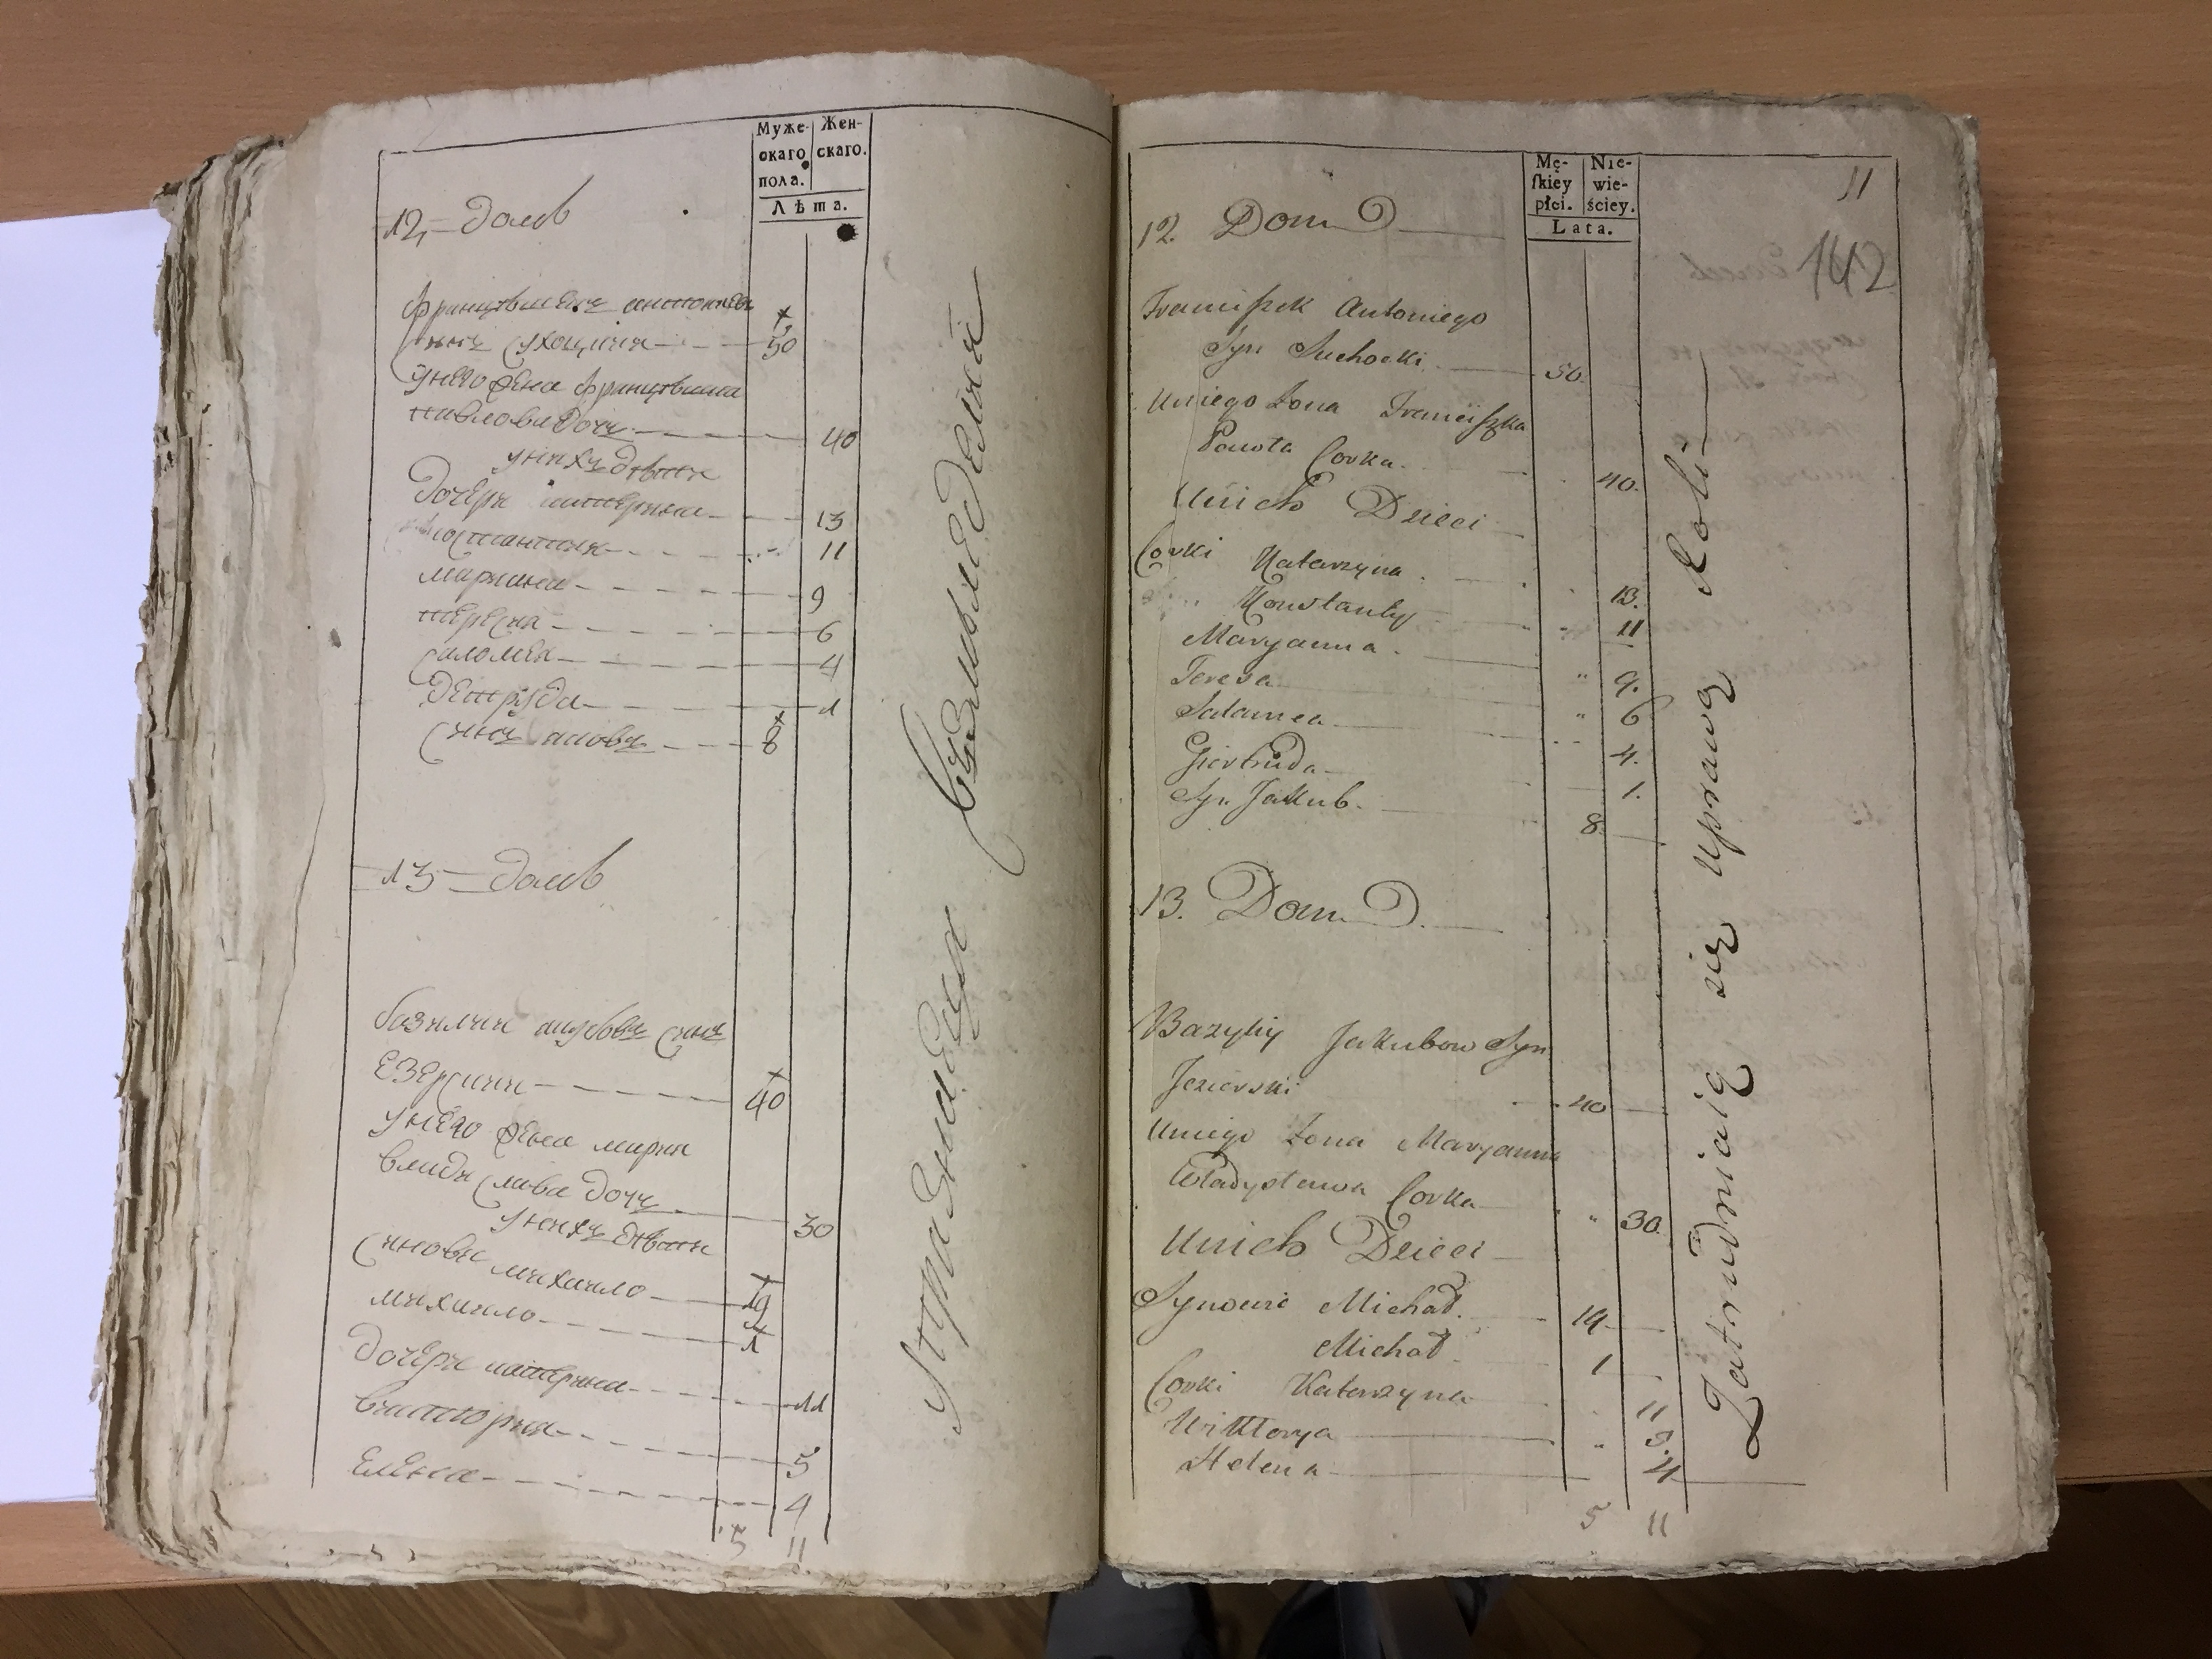 Муже- Жен-
скаго скаго.
пола.
Лѣта.
12, домъ
францѣшекъ антониевъ
сынъ сухоцкий 50
унего жена францѣшка
павлова дочь 40
унихъ дѣти
дочери катерина 13
константия 11
марияна 9
тереса 6
саломея 4
гетруда 1
сынъ яковъ 8
13 домъ
базилий якубовъ сынъ
езерский 40
унего жена мария
владислава дочь 30
унихъ дѣти
сыновья михаило 19
михаило 1
дочери катерина 11
виктория 5
елена 4
5 11
упражняется въ земледелии
Mę- Nie-
ſkiey wie-
płci. ściey.
Lata.
11
142
12. Dom
Franciſzek Antoniego
Syn Suchocki 50.
Uniego Zona Franciſzka
Pawła Corka. 40.
Unich Dzieci
Corki Katarzyna 13.
Konstanty 11
Maryanna. 9.
Teresa 6
Salamea 4.
Giertruda 1.
Syn Jakub. 8.
13. Dom
Bazyliy Jakubow Syn
Jezierski 40
Uniego Zona Maryanna
Władysława Corka 30.
Unich Dzieci
Synowie Michał. 19
Michał 1
Corki Katarzyna 11
Wiktorya 5.
Helena 4
5 11
Zatrudniaią się uprawą Roli